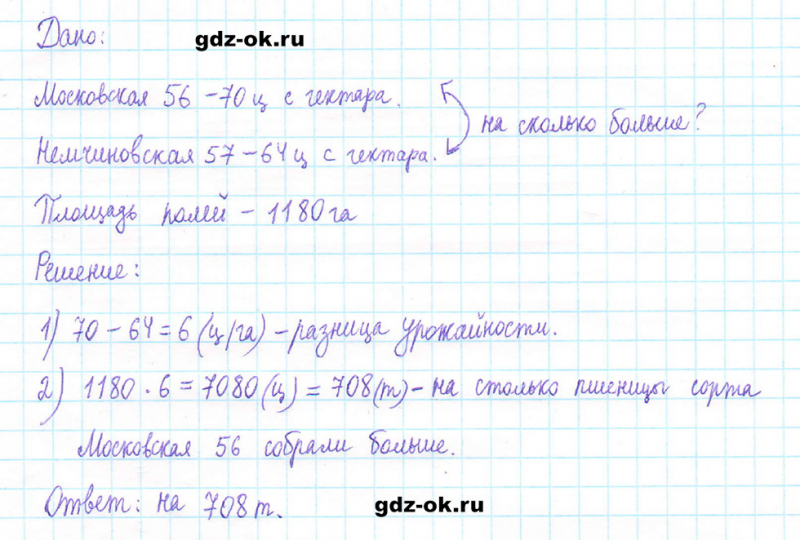 Дано: gdz-ok.ru
Московская 56 – 70 ц с гектара.
на сколько больше?
Немчиновская 57 – 64 ц с гектара.
Площадь полей – 1180 га
Решение:
1) 70 – 64 = 6 (ц/га) – разница урожайности.
2) 1180 · 6 = 7080 (ц) = 708 (т) – на столько пшеницы сорта
Московская 56 собрали больше.
Ответ: на 708 т. gdz-ok.ru